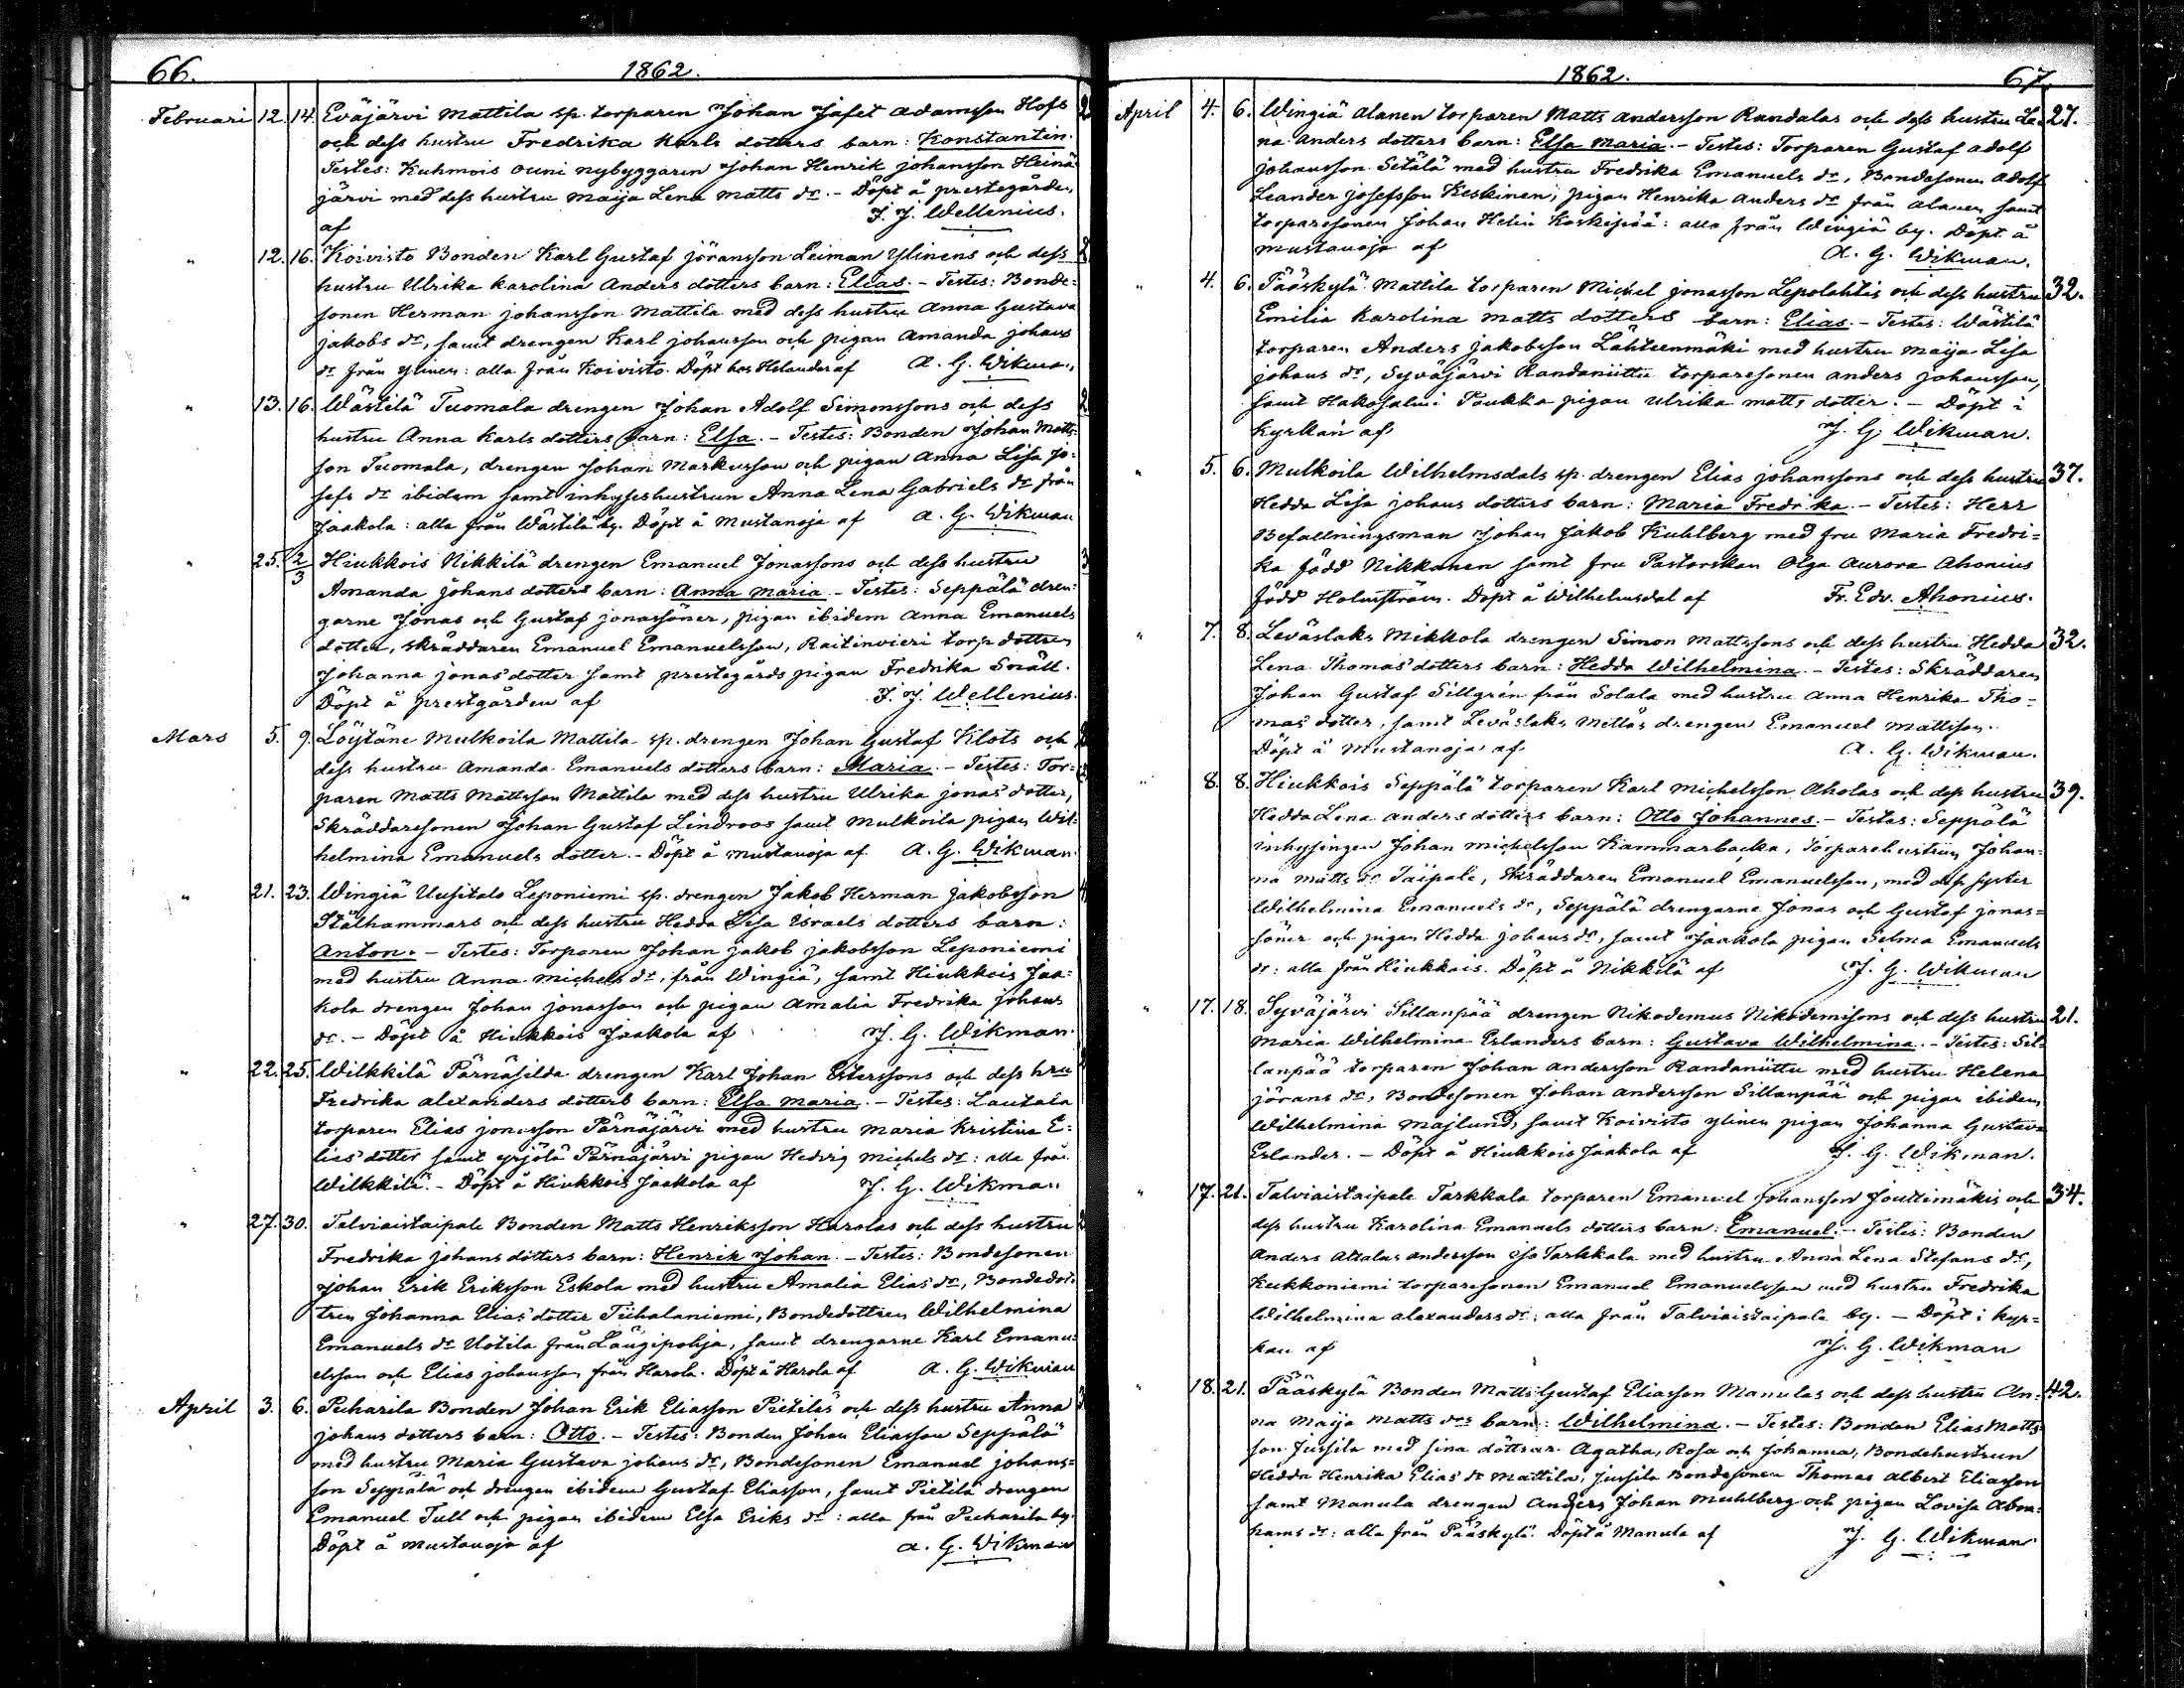 66. 1862.
Februari 12. 14. Eväjärvi Mattila sp. torparen Johan Jafet Adamsson Hofs 2
och dess hustru Fredrika Karls dotters barn: Konstantin.
Testes: Kuhmois Ouni nybyggaren Johan Henrik Johansson Heinä-
järvi med dess hustru Maija Lena Matts dr. - Döpt å prestegården
af J. J. Wellenius.
" 12. 16. Koivisto Bonden Karl Gustaf Jöransson Leiman Ylinens och dess 2
hustru Ulrika Karolina Anders dotters barn: Elias. - Testes: Bonde-
sonen Herman Johansson Mattila med dess hustru Anna Gustava
Jakobs dr, samt drengen Karl Johansson och pigan Amanda Johans
dr från Ylinen: alla från Koivisto. Döpt hos Helander af A. G. Wikman
" 13. 16. Wästilä Tuomala drengen Johan Adolf Simonssons och dess 2
hustru Anna Karls dotters barn: Elsa. - Testes: Bonden Johan Matts-
son Tuomala, drengen Johan Markusson och pigan Anna Lisa Jo-
sefs dr ibidem samt inhyseshustrun Anna Lena Gabriels dr från
Jaakola: alla från Wästilä by. Döpt å Mustanoja af A. G. Wikman
" 25. 2/3 Hiukkois Nikkilä drengen Emanuel Jonassons och dess hustru 3
Amanda Johans dotters barn: Anna Maria. - Testes: Seppälä dren-
garne Jonas och Gustaf Jonassöner, pigan ibidem Anna Emanuels
dotter, skräddaren Emanuel Emanuelsson, Raitinvieri torp dottren
Johanna Jonas dotter samt prestegårds pigan Fredrika Snäll.
Döpt å prestgården af J. J. Wellenius.
Mars 5. 9. Löytäne Mulkoila Mattila sp. drengen Johan Gustaf Klots och
dess hustru Amanda Emanuels dotters barn: Maria. - Testes: Tor-
paren Matts Mattsson Mattila med dess hustru Ulrika Jonas dotter,
Skräddaresonen Johan Gustaf Lindroos samt Mulkoila pigan Wil-
helmina Emanuels dotter. - Döpt å Mustanoja af A. G. Wikman.
" 21. 23. Wingiä Uusitalo Leponiemi sp. drengen Jakob Herman Jakobsson 4
Stålhammars och dess hustru Hedda Lisa Israels dotters barn:
Anton. - Testes: Torparen Johan Jakob Jakobsson Leponiemi
med hustru Anna Michels dr, från Wingiä, samt Hiukkois Jaa-
kola drengen Johan Jonasson och pigan Amalia Fredrika Johans
dr. - Döpt å Hiukkois Jaakola af J. G. Wikman.
" 22. 25. Wilkkilä Pärnäsilda drengen Karl Johan Esterssons och dess hru
Fredrika Alexanders dotters barn: Elsa Maria. - Testes: Lautala
torparen Elias Jonasson Pärnäjärvi med hustru Maria Kristina E-
lias dotter samt Yrjölä Pärnäjärvi pigan Hedvig Michels dr: alla från
Wilkkilä. - Döpt å Hiukkois Jaakola af J. G. Wikman
" 27. 30. Talviaistaipale Bonden Matts Henriksson Harolas och dess hustru 2
Fredrika Johans dotters barn: Henrik Johan. - Testes: Bondesonen
Johan Erik Eriksson Eskola med hustru Amalia Elias dr, Bondedot-
tren Johanna Elias dotter Tiihalaniemi, Bondedottren Wilhelmina
Emanuels dr Uotila från Längipohja, samt drengarne Karl Emanu-
elsson och Elias Johansson från Harola. Döpt å Harola af A. G. Wikman
April 3. 6. Puharila Bonden Johan Erik Eliasson Pietiläs och dess hustru Anna 3
Johans dotters barn: Otto. - Testes: Bonden Johan Eliasson Seppälä
med hustru Maria Gustava Johans dr, Bondesonen Emanuel Johans-
son Seppälä och drengen ibidem Gustaf Eliasson, samt Pietilä drengen
Emanuel Tull och pigan ibidem Elsa Eriks dr: alla från Puharila by.
Döpt å Mustanoja af A. G. Wikman
1862. 67.
April 4. 6. Wingiä Alanen torparen Matts Andersson Randalas och dess hustru Le- 27.
na Anders dotters barn: Elsa Maria. - Testes: Torparen Gustaf Adolf
Johansson Setälä med hustru Fredrika Emanuels dr, Bondesonen Adolf
Leander Josefsson Keskinen, pigan Henrika Anders dr från Alanen samt
torparesonen Johan Helin Koskipää: alla från Wingiä by. Döpt å
Mustanoja af A. G. Wikman.
" 4. 6. Pääskylä Mattila torparen Michel Jonasson Lepolahtis och dess hustru 32.
Emilia Karolina Matts dotters barn: Elias. - Testes: Wästilä
torparen Anders Jakobsson Lähteenmäki med hustru Maija Lisa
Johans dr, Syväjärvi Randaniittu torparesonen Anders Johansson,
samt Hakosalmi Poukka pigan Ulrika Matts dotter. - Döpt i
Kyrkan af J. G. Wikman.
" 5. 6. Mulkoila Wilhelmsdals sp. drengen Elias Johanssons och dess hustru 37.
Hedda Lisa Johans dotters barn: Maria Fredrika. - Testes: Herr
Befallningsman Johan Jakob Kuhlberg med fru Maria Fredri-
ka född Nikkanen samt fru Pastorskan Olga Aurora Ahonius
född Holmström. Döpt å Wilhelmsdal af Fr. Edv. Ahonius.
" 7. 8. Leväslaks Mikkola drengen Simon Mattssons och dess hustru Hedda 32.
Lena Thomas dotters barn: Hedda Wilhelmina. - Testes: Skräddaren
Johan Gustaf Sillgrén från Solala med hustru Anna Henrika Tho-
mas dotter, samt Leväslaks Mellås drengen Emanuel Mattsson.
Döpt å Mustanoja af A. G. Wikman.
" 8. 8. Hiukkois Seppälä torparen Karl Michelsson Aholas och dess hustru 39.
Hedda Lena Anders dotters barn: Otto Johannes. - Testes: Seppälä
inhysingen Johan Michelsson Kammarbacka, Torparehustrun Johan-
na Matts dr Taipale, Skräddaren Emanuel Emanuelsson, med dess syster
Wilhelmina Emanuels dr, Seppälä drengarne Jonas och Gustaf Jonas-
söner och pigan Hedda Johans dr, samt Jaakola pigan Selma Emanuels
dr: alla från Hiukkois. Döpt å Nikkilä af J. G. Wikman
" 17. 18. Syväjärvi Sillanpää drengen Nikodemus Nikodemssons och dess hustru 21.
Maria Wilhelmina Erlanders barn: Gustava Wilhelmina. - Testes: Sil-
lanpää torparen Johan Andersson Randaniittu med hustru Helena
Jörans dr, Bondesonen Johan Andersson Sillanpää och pigan ibidem
Wilhelmina Majlund, samt Koivisto Ylinen pigan Johanna Gustava
Erlander. - Döpt å Hiukkois Jaakola af J. G. Wikman.
" 17. 21. Talviaistaipale Tarkkala torparen Emanuel Johansson Joutimäkis och 34.
dess hustru Karolina Emanuels dotters barn: Emanuel. - Testes: Bonden
Anders Attalus Andersson Iso Tarkkala med hustru Anna Lena Stefans dr,
Kukkoniemi torparesonen Emanuel Emanuelsson med hustru Fredrika
Wilhelmina Alexanders dr: alla från Talviaistaipale by. - Döpt i kyr-
kan af J. G. Wikman
" 18. 21. Pääskylä Bonden Matts Gustaf Eliasson Manulas och dess hustru An- 42.
na Maija Matts drs barn: Wilhelmina. - Testes: Bonden Elias Matts-
son Jussila med sina döttrar Agatha, Rosa och Johanna, Bondehustrun
Hedda Henrika Elias dr Mattila, Jussila Bondesonen Thomas Albert Eliasson
samt Manula drengen Anders Johan Muhlberg och pigan Lovisa Abra-
hams dr: alla från Pääskylä. Döpt å Manula af J. G. Wikman